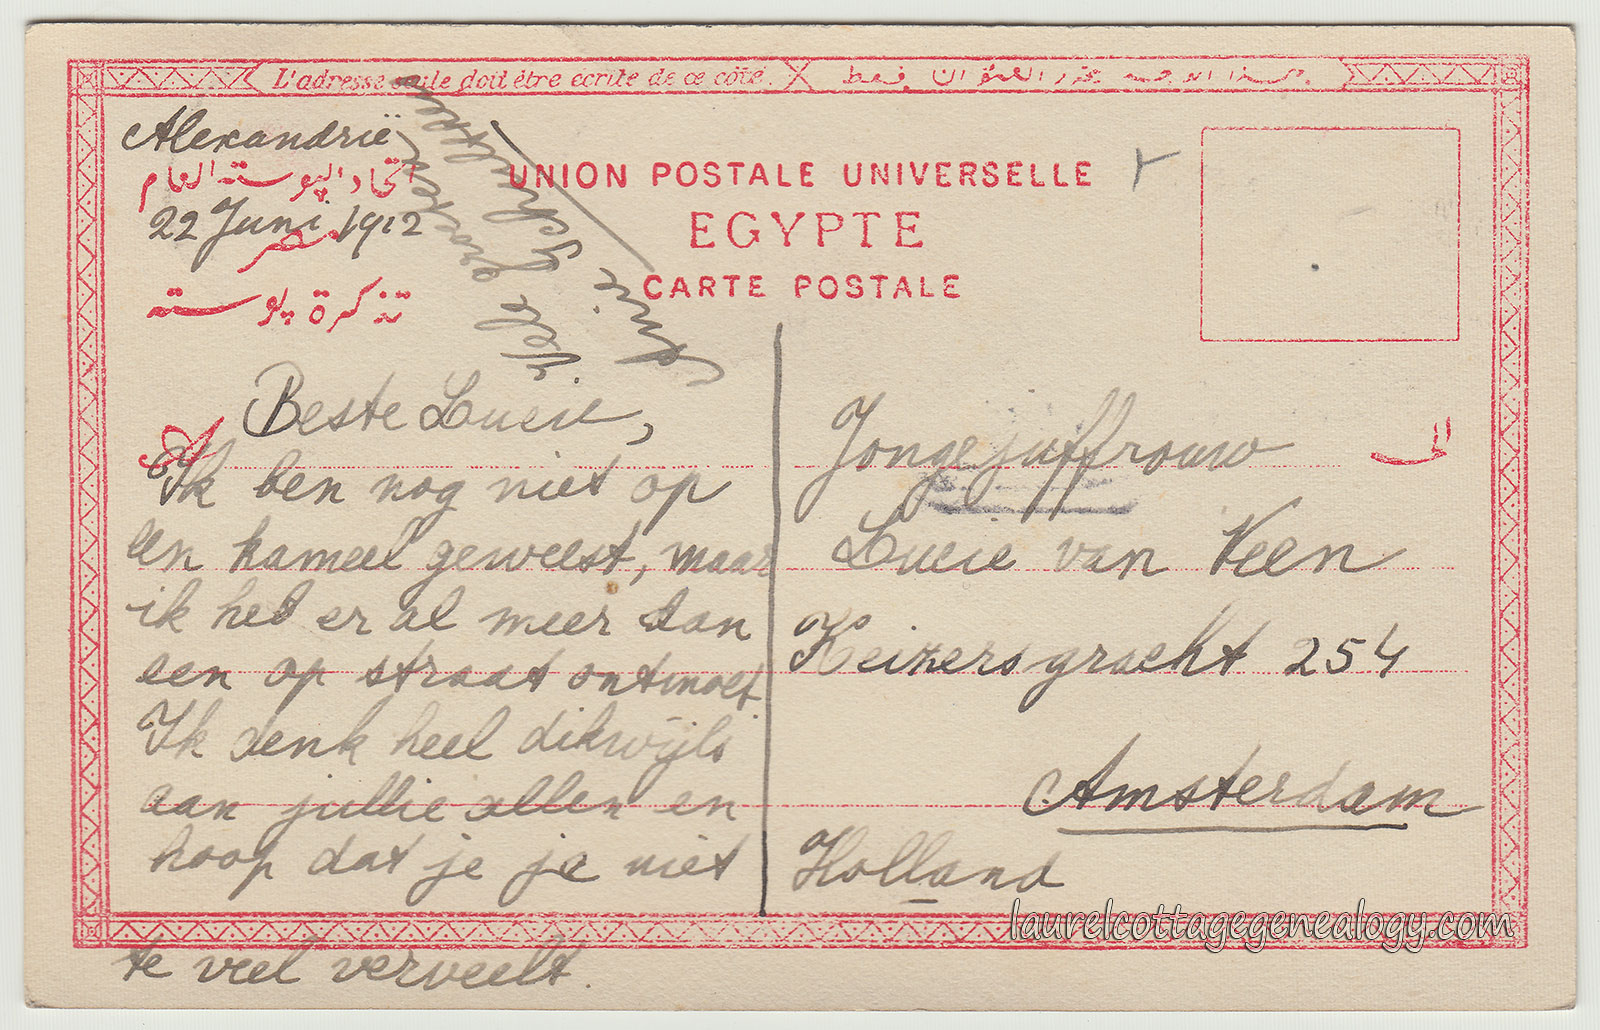 L'adresse seule doit être écrite de ce côté.
Alexandrië
اتحاد البوسته العام
22 Juni 1912
مصر
تذكرة بوسته
UNION POSTALE UNIVERSELLE
EGYPTE
CARTE POSTALE
Vele groeten
Beste Lucie,
Ik ben nog niet op
een kameel geweest, maar
ik heb er al meer dan
een op straat ontmoet
Ik denk heel dikwijls
aan jullie allen en
hoop dat je je niet
te veel verveelt.
Jongejuffrouw
الى
Lucie van Veen
Keizersgracht 254
Amsterdam
Holland
laurelcottagegenealogy.com